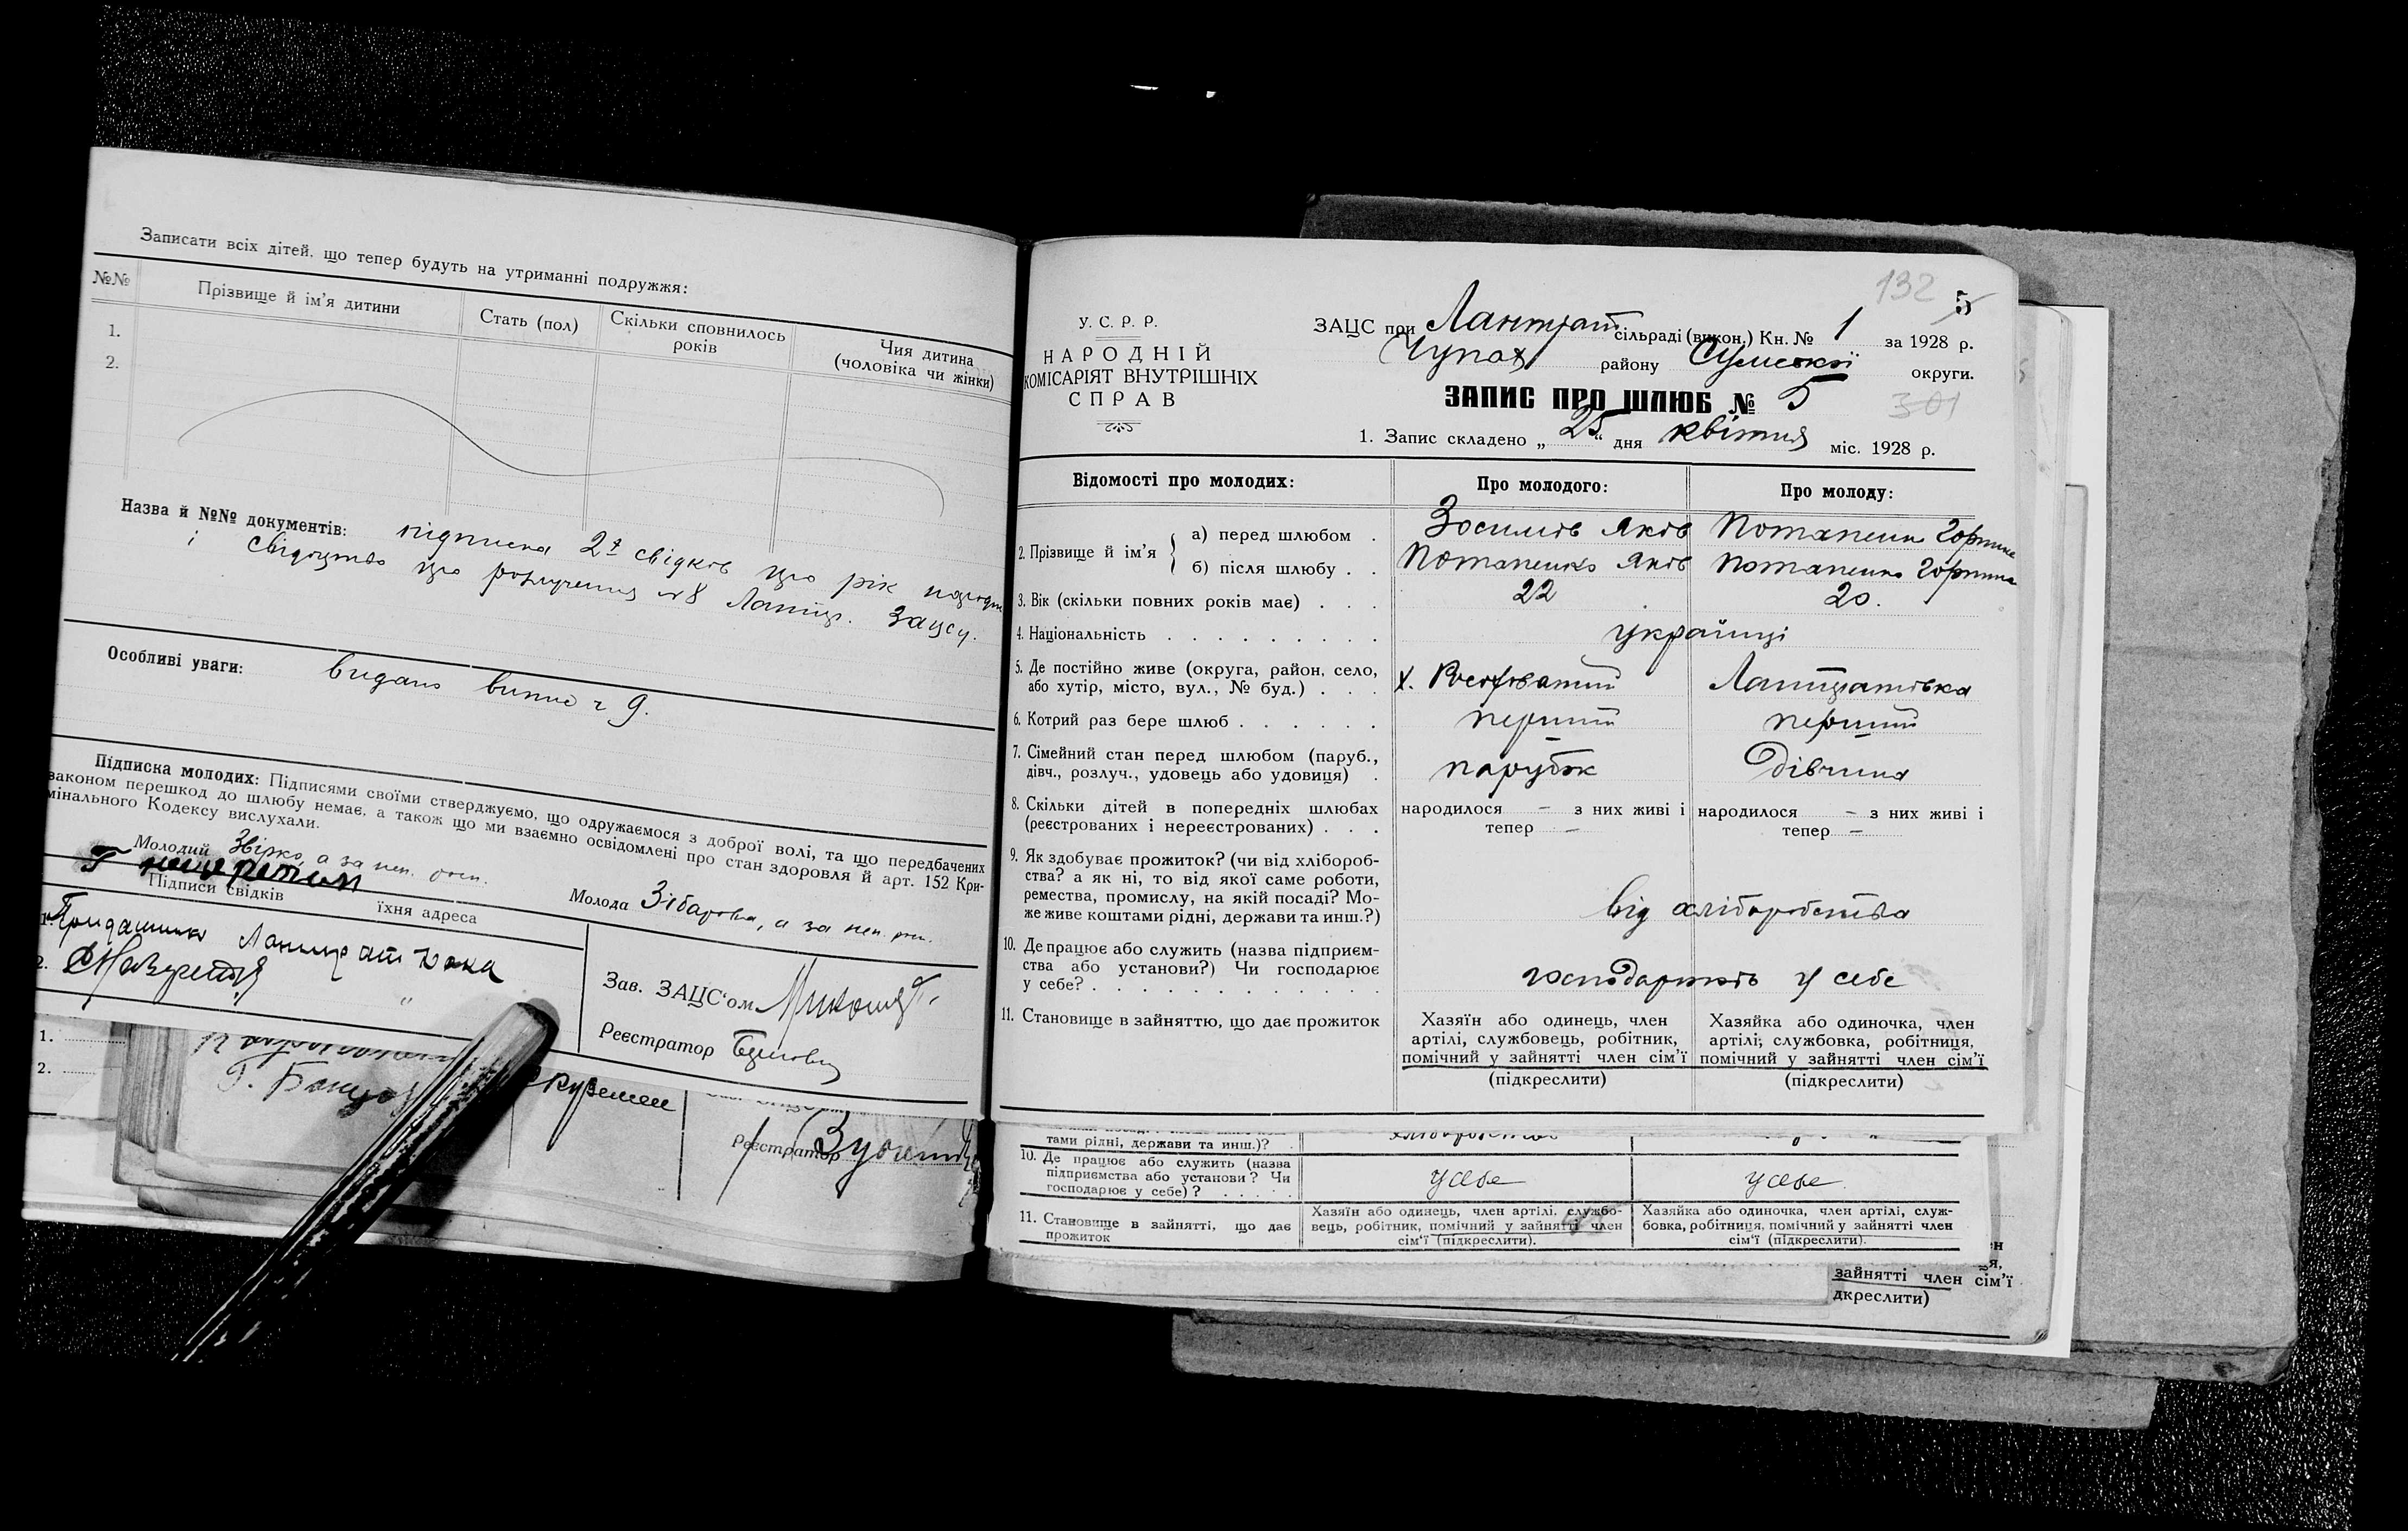 Записати всіх дітей, що тепер будуть на утриманні подружжя:
№№ Прізвище й ім'я дитини Стать (пол) Скільки сповнилось років Чия дитина (чоловіка чи жінки)
1.
2.
Назва й №№ документів: підписка 2х свідків про рік
і свідоцтво про розлучення №8 Лантр. Зацсу.
Особливі уваги: видано витяг 9.
Підписка молодих: Підписями своїми стверджуємо, що одружаємося з доброї волі, та що передбачених
законом перешкод до шлюбу немає, а також що ми взаємно освідомлені про стан здоров'я й арт. 152 Кри-
мінального Кодексу вислухали.
Молодий а за неп.
Молода а за неп.
Підписи свідків їхня адреса
1.
2. "
Зав. ЗАЦС'ом
Реєстратор
1.
2.
Реєстратор
132 5
У. С. Р. Р.
НАРОДНІЙ
КОМІСАРІЯТ ВНУТРІШНІХ
СПРАВ
ЗАЦС при Лантрат сільраді (викон.) Кн. № 1 за 1928 р.
Чупах району Сумської округи.
ЗАПИС ПРО ШЛЮБ № 5
301
1. Запис складено „ 25 “ дня квітня міс. 1928 р.
Відомості про молодих: Про молодого: Про молоду:
2. Прізвище й ім'я
а) перед шлюбом . Зосимов Яков Потапенко Горпина
б) після шлюбу . . Потапенко Яків Потапенко Горпина
3. Вік (скільки повних років має) . . . 22 20.
4. Національність . . . . . . . . . українці
5. Де постійно живе (округа, район, село,
або хутір, місто, вул., № буд.) . . . х. Лантратівка
6. Котрий раз бере шлюб . . . . . . перший перший
7. Сімейний стан перед шлюбом (паруб.,
дівч., розлуч., удовець або удовиця) . парубок Дівчина
8. Скільки дітей в попередніх шлюбах
(реєстрованих і нереєстрованих) . . .
народилося – з них живі і
тепер –
народилося – з них живі і
тепер –
9. Як здобуває прожиток? (чи від хлібороб-
ства? а як ні, то від якої саме роботи,
ремества, промислу, на якій посаді? Мо-
же живе коштами рідні, держави та инш.?)
від хліборобства
10. Де працює або служить (назва підприєм-
ства або установи?) Чи господарює
у себе? . . . . . . . . . . . . .
господарюють у себе
11. Становище в зайняттю, що дає прожиток
Хазяїн або одинець, член
артілі, службовець, робітник,
помічний у зайнятті член сім'ї
(підкреслити)
Хазяйка або одиночка, член
артілі; службовка, робітниця,
помічний у зайнятті член сім'ї
(підкреслити)
тами рідні, держави та инш.)?
10. Де працює або служить (назва
підприємства або установи? Чи
господарює у себе) ? . . . . .
у себе у себе
11. Становище в зайнятті, що дає
прожиток
Хазяїн або одинець, член артілі, службо-
вець, робітник, помічний у зайнятті член
сім'ї (підкреслити).
Хазяйка або одиночка, член артілі, служ-
бовка, робітниця, помічний у зайнятті член
сім'ї (підкреслити).
зайнятті член сім'ї
дкреслити)